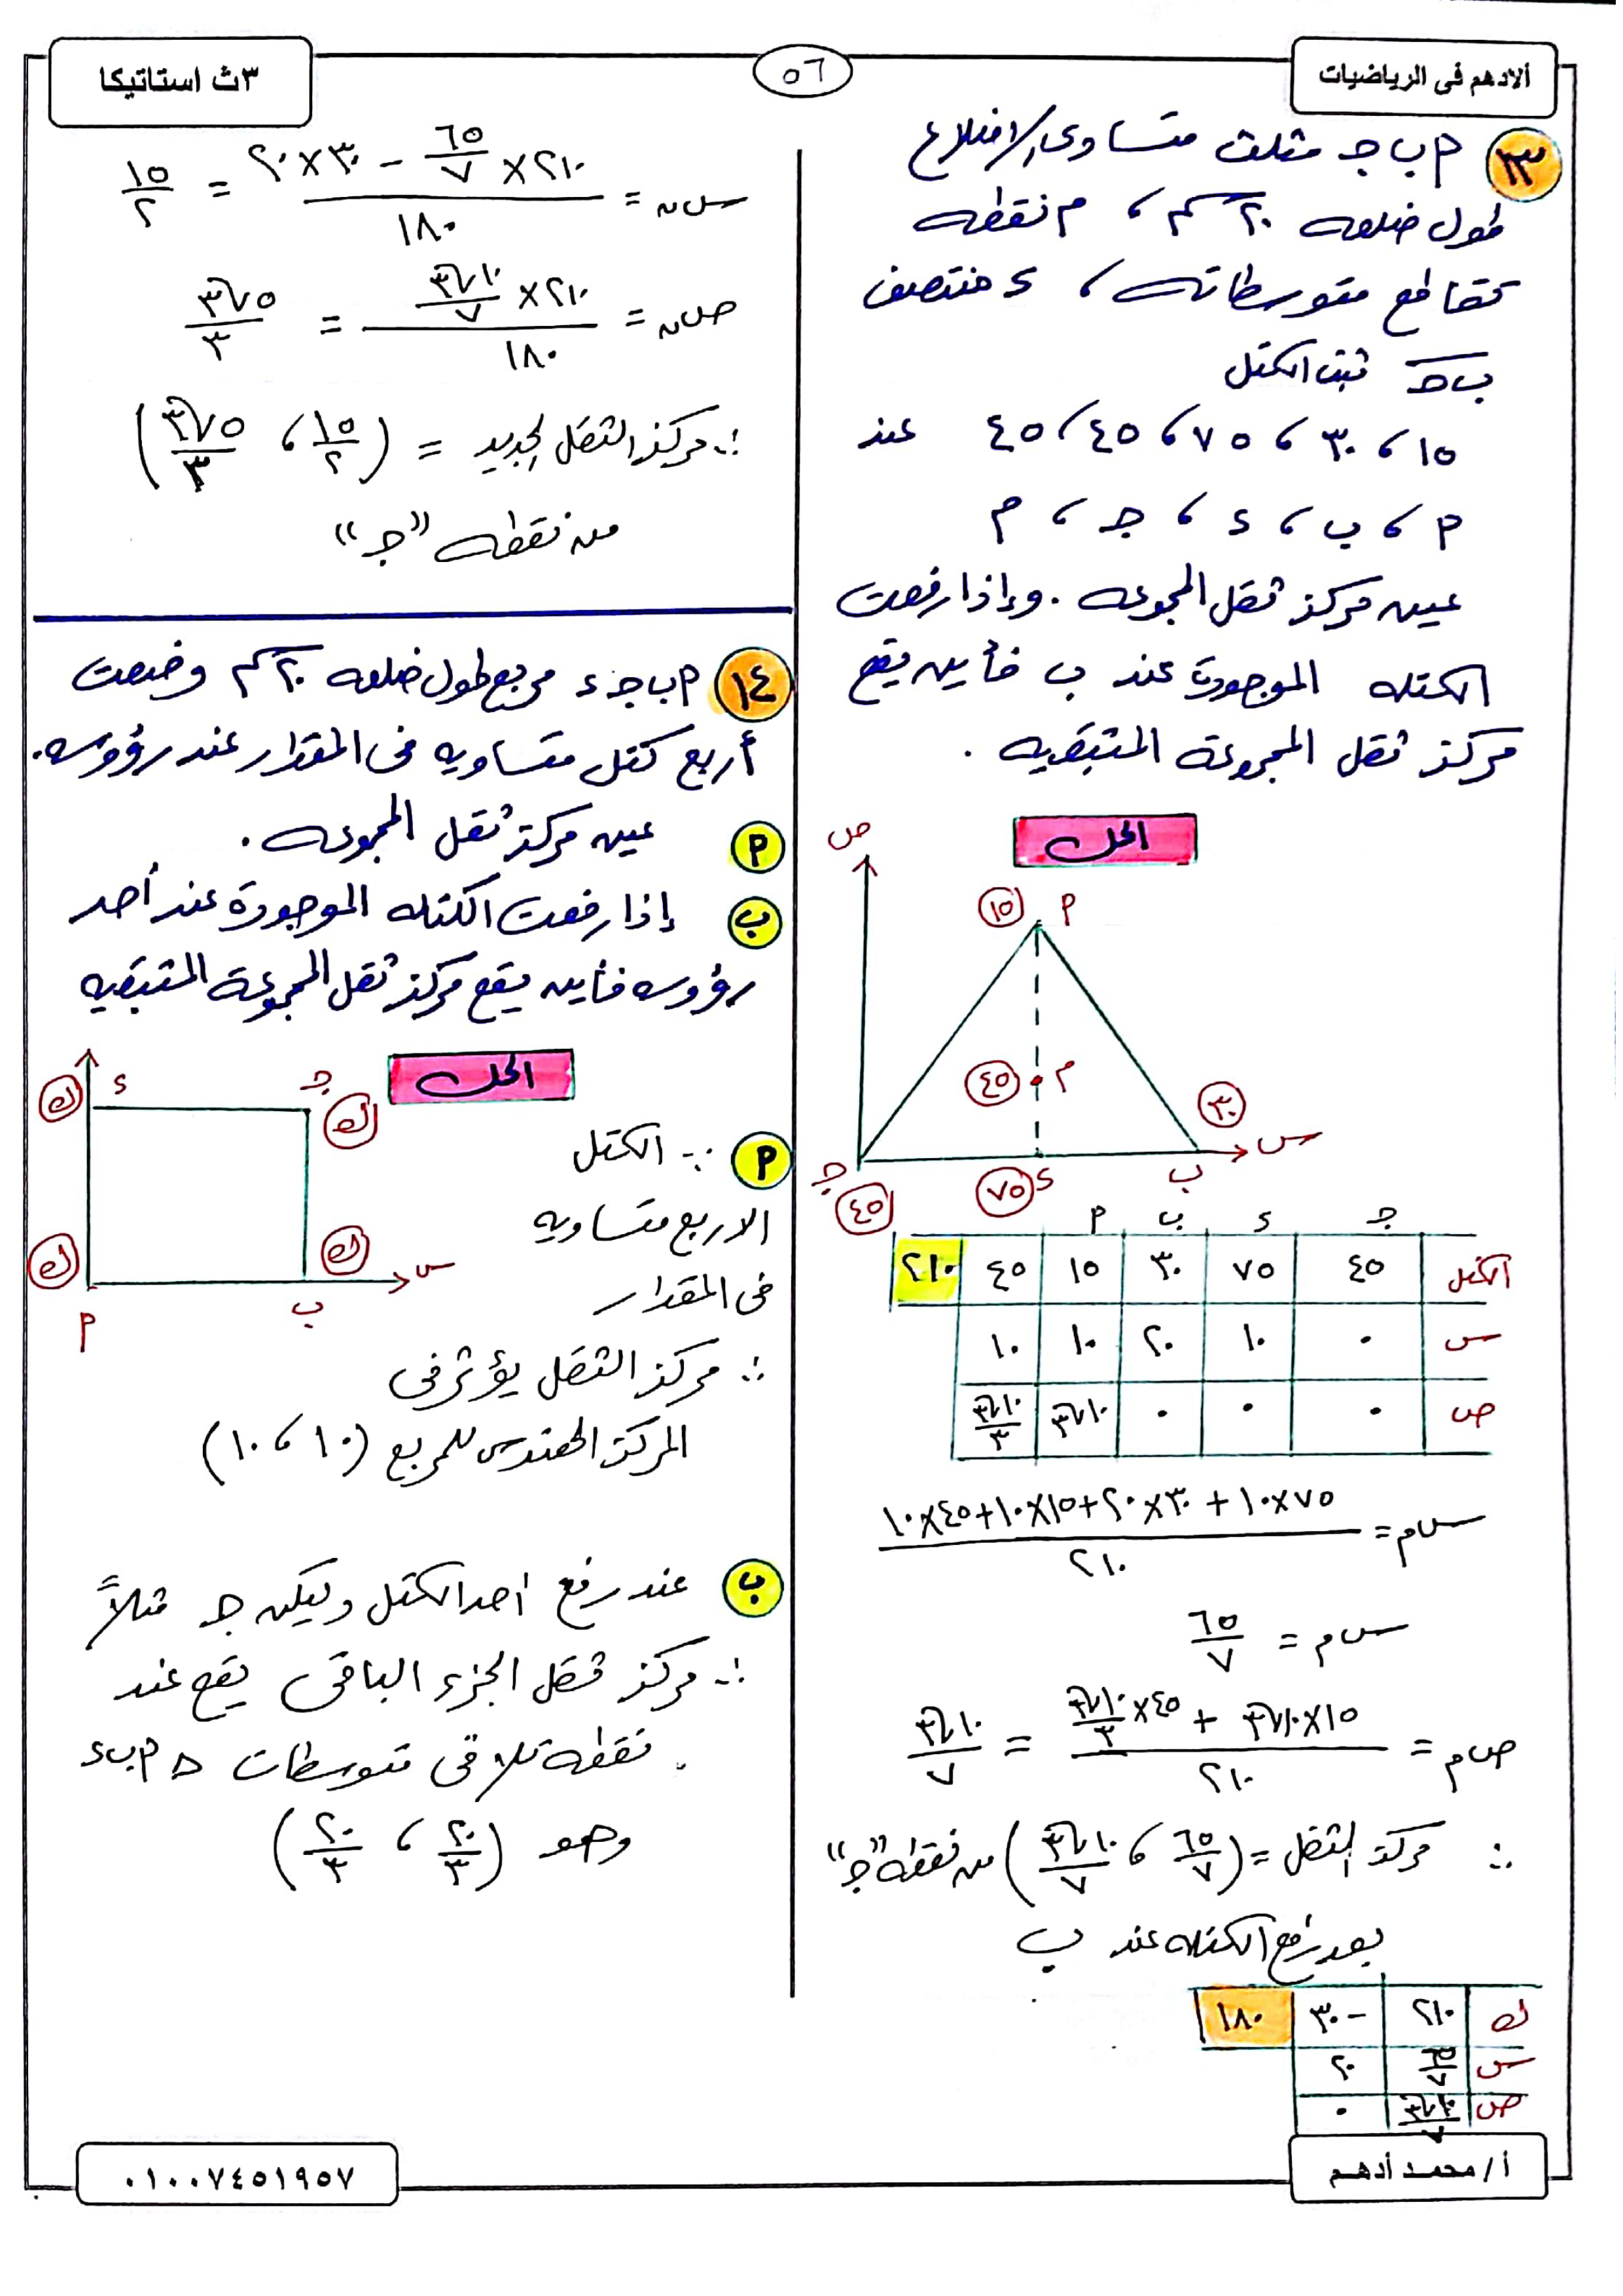 ألادهم فى الرياضيات
٥٦
٣ث استاتيكا
١٣ أ ب جـ مثلث متساوى الاضلاع
طول ضلعه ٢٠ سم ، م نقطه
تقاطع متوسطاته ، ء منتصف
ب جـ ثبتت الكتل
١٥ ، ٣٠ ، ٧٥ ، ٤٥ ، ٤٥ عند
أ ، ب ، ء ، جـ ، م
عين مركز ثقل المجموعه . وإذا رفعت
الكتله الموجودة عند ب فأين يقع
مركز ثقل المجموعة المتبقيه .
الحل
ص
١٥ أ
٤٥ م
٣٠
س
جـ ٧٥ ء ب
٤٥
جـ ء ب أ
الكتل ٤٥ ٧٥ ٣٠ ١٥ ٤٥ ٢١٠
س ٠ ١٠ ٢٠ ١٠ ١٠
ص ٠ ٠ ٠ ١٠√٣ ١٠√٣/٣
س م = (٧٥×١٠ + ٣٠×٢٠ + ١٥×١٠ + ٤٥×١٠)/٢١٠
س م = ٦٥/٧
ص م = (١٥×١٠√٣ + ٤٥×١٠√٣/٣)/٢١٠ = ١٠√٣/٧
∴ مركز الثقل = (٦٥/٧ ، ١٠√٣/٧) من نقطه "جـ"
بعد رفع الكتله عند ب
ك ٢١٠ -٣٠ ١٨٠
س ٦٥/٧ ٢٠
ص ١٠√٣/٧ ٠
س ن = (٢١٠×٦٥/٧ - ٣٠×٢٠)/١٨٠ = ١٥/٢
ص ن = (٢١٠×١٠√٣/٧)/١٨٠ = ٥√٣/٣
∴ مركز الثقل الجديد = (١٥/٢ ، ٥√٣/٣)
من نقطه "جـ"
١٤ أ ب جـ ء مربع طول ضلعه ٢٠ سم وضعت
أربع كتل متساويه فى المقدار عند رؤوسه.
أ عين مركز ثقل المجموعه .
ب إذا رفعت الكتله الموجودة عند أحد
رؤوسه فأين يقع مركز ثقل المجموعة المتبقيه
الحل
ك ء جـ ك
ك ك س
أ ب
أ ∵ الكتل
الاربع متساويه
فى المقدار
∴ مركز الثقل يؤثر فى
المركز الهندسى للمربع (١٠ ، ١٠)
ب عند رفع احد الكتل وليكن جـ مثلاً
∴ مركز ثقل الجزء الباقى يقع عند
نقطة تلاقى متوسطات △ أ ب ء
وهو (٢٠/٣ ، ٢٠/٣)
أ / محمد أدهم
٠١٠٠٧٤٥١٩٥٧